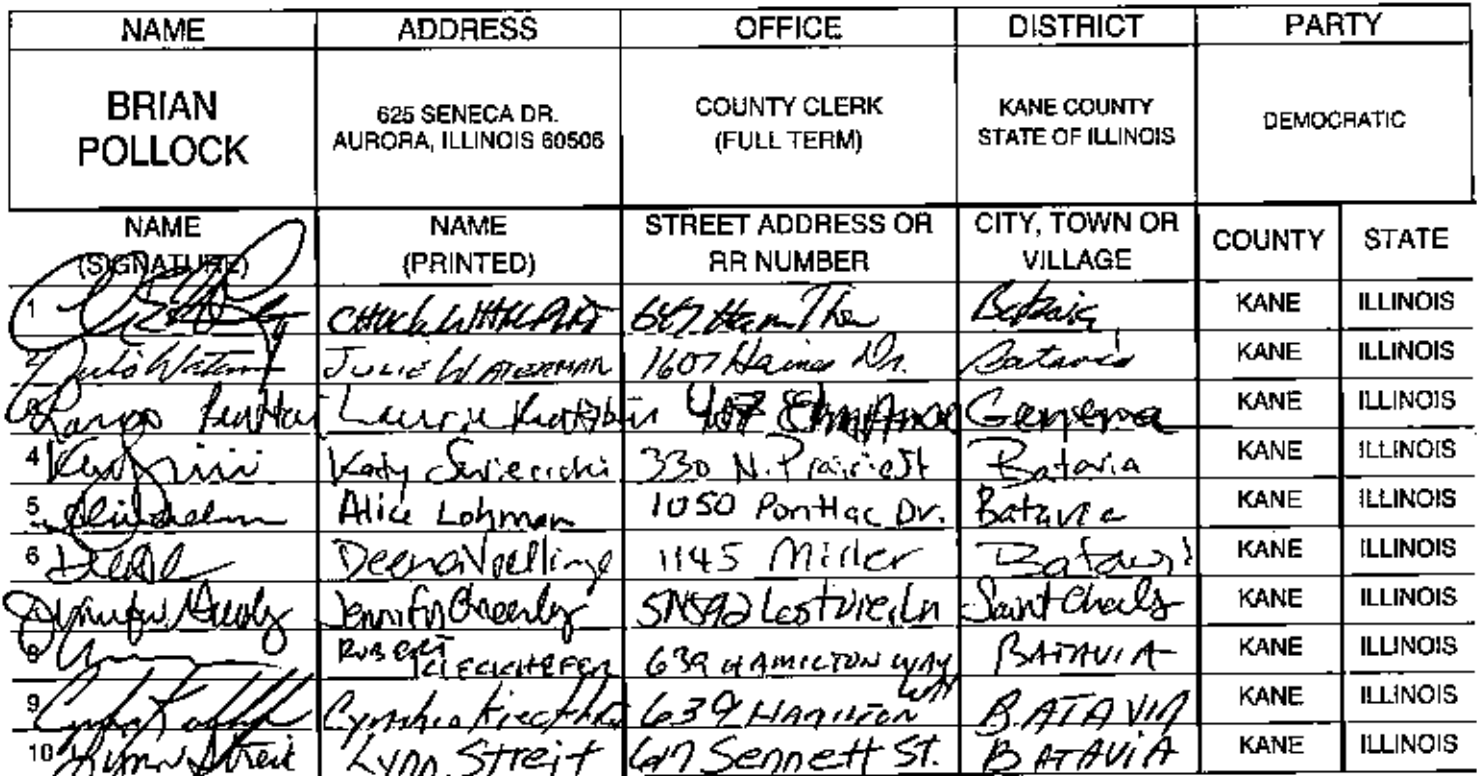 NAME ADDRESS OFFICE DISTRICT PARTY
BRIAN POLLOCK 625 SENECA DR. AURORA, ILLINOIS 60506 COUNTY CLERK (FULL TERM) KANE COUNTY STATE OF ILLINOIS DEMOCRATIC
NAME (SIGNATURE) NAME (PRINTED) STREET ADDRESS OR RR NUMBER CITY, TOWN OR VILLAGE COUNTY STATE
1 CHUCK Batavia KANE ILLINOIS
2 JULIE WATERMAN 1607 Haines Dr. Batavia KANE ILLINOIS
3 Laurie 407 Geneva KANE ILLINOIS
4 Katy 330 N. Prairie St Batavia KANE ILLINOIS
5 Alice Lohman 1050 Pontiac Dr. Batavia KANE ILLINOIS
6 Deena 1145 Miller Batavi KANE ILLINOIS
7 Jennifer Greenley Ln Saint Charles KANE ILLINOIS
8 ROBERT KIECKHEFER 639 HAMILTON WAY BATAVIA KANE ILLINOIS
9 Cynthia 639 HAMILTON WAY BATAVIA KANE ILLINOIS
10 Lynn Streit Lynn Streit 617 Sennett St. BATAVIA KANE ILLINOIS